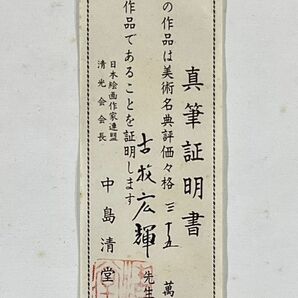 真筆証明書
の作品は美術名典評価々格 三十五 萬
古牧広輝 先生
作品であることを証明します
日本絵画作家連盟
清光会会長 中島清堂